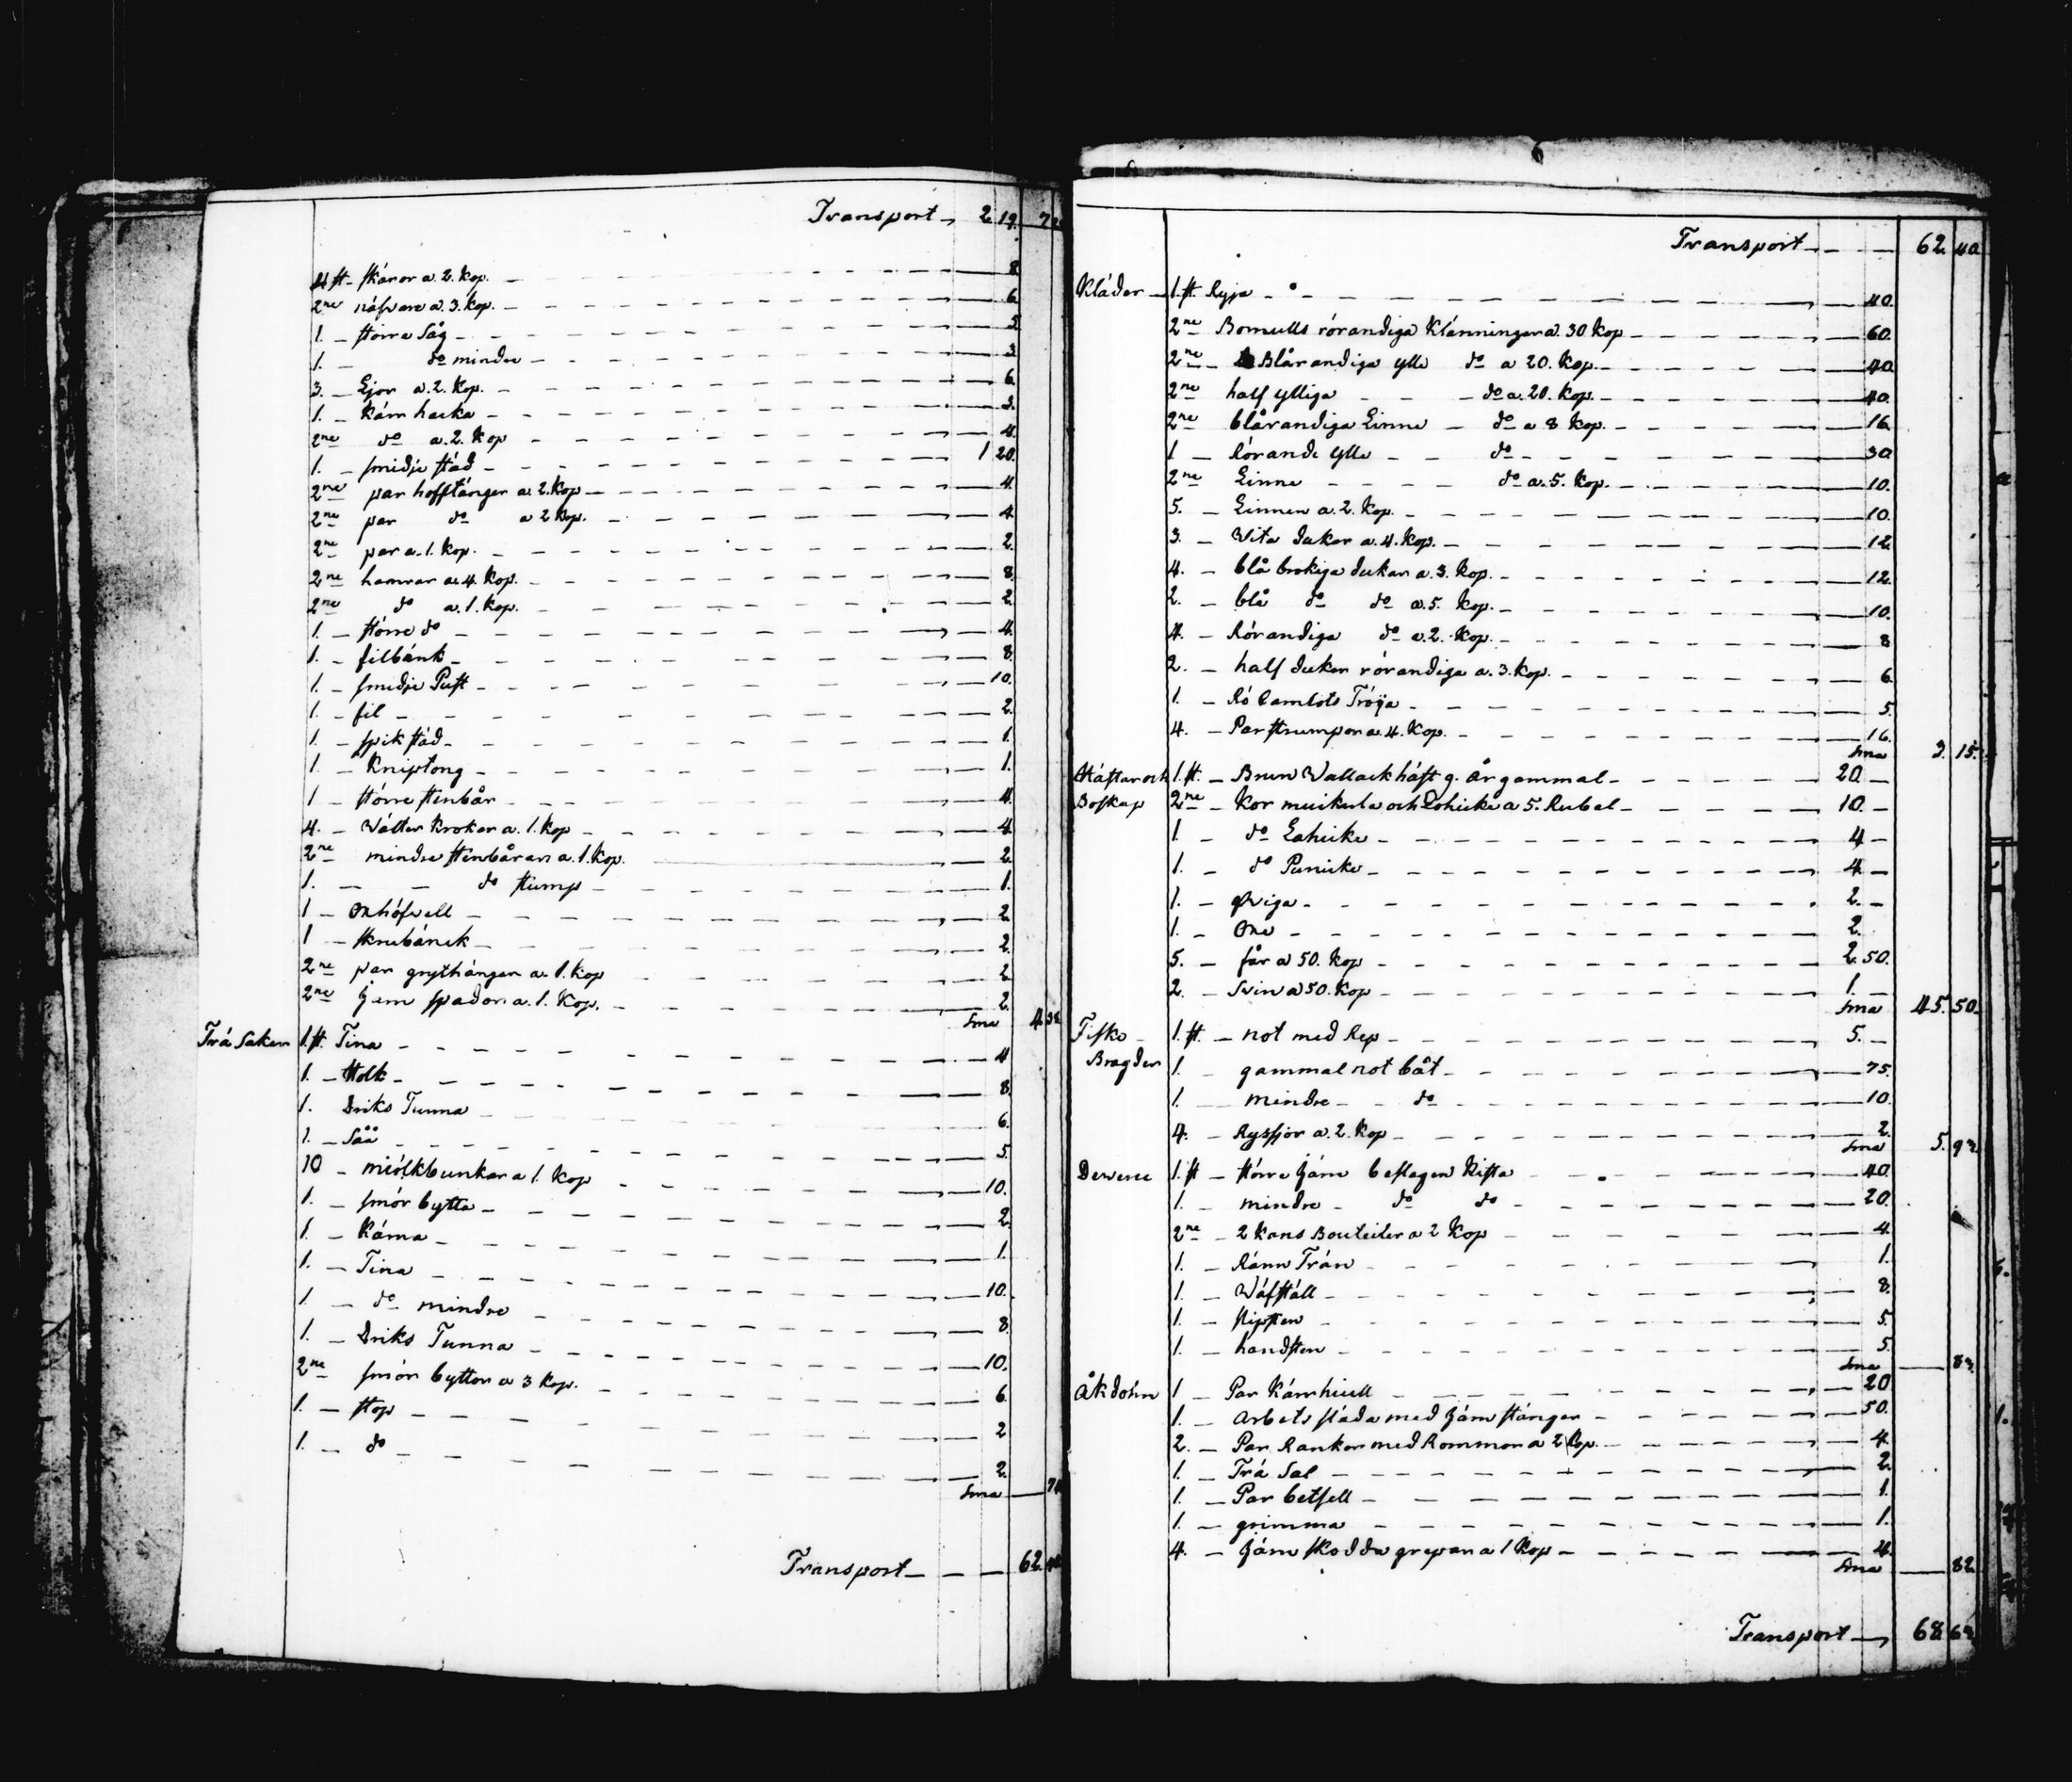 Transport 2 19. 7
4 st. skäror a. 2. kop. 8
2ne näfvare a. 3. kop. 6
1. större Såg 5
1. do mindre 3
3. Ljor a. 2. kop. 6
1. Kärn hacka 3.
2ne do a. 2. kop 4.
1. smidje städ 1 20.
2ne par hofftänger a. 2. kop 4.
2ne par do a 2 kop. 4
2ne par a. 1. kop. 2.
2ne hamrar a. 4. kop. 8.
2ne do a. 1. kop. 2.
1. större do 4.
1. filbänk 8.
1. smidje Pust 10.
1. fil 2.
1. spik städ 1.
1. Kniptong 1.
1 större stenbår 4.
4. Wätter krokar a. 1. kop 4.
2ne mindre stenbårar a. 1. kop. 2
1. do stump 1.
1 Okhöfvell 2
1 skrubänck 2.
2ne par grythänger a. 1. kop 2
2ne Jern spador a. 1. kop. 2
Sma 4 38
Trä Saker 1. st. Tina 4
1. stolk 8.
1. Driks Tunna 6.
1. Såå 5
10 miölkbunkar a 1. kop 10.
1. smör bytta 2
1. Kärna 1.
1. Tina 10.
1 do mindre 8
1. Driks Tunna 10.
2ne smör byttor a 3 kop. 6
1. stop 2
1. do 2.
Sma 74
Transport 62. 40
Transport 62 40
Kläder 1. st. Ryja 40.
2ne Bomulls rörandiga Klänningar a. 30 kop 60.
2ne Blårandiga ylle do a 20. kop. 40
2ne half ylliga do a. 20. kop. 40.
2ne blårandiga Linne do a 8 kop. 16
1 Rörandi ylle do 30
2ne Linne do a. 5. kop. 10.
5. Linnen a. 2. kop. 10.
3. Wita dukar a. 4. kop. 12
4. blå brokiga dukar a. 3. kop. 12.
2. blå do do a. 5. kop. 10.
4. Rörandiga do a. 2. kop. 8
2. half dukar rörandiga a. 3. kop. 6.
1. Rö Camlots Tröija 5.
4. Par strumpor a. 4. kop. 16.
Sma 3. 15.
Hästar och 1. st. Brun Wallack häst 9. År gammal 20.
Boskap 2ne Kor muikula och Lohicke a 5. Rubel 10.
1. do Lahicke 4
1. do Punicke 4
1. Qviga 2.
1. Oxe 2.
5. får a 50. kop 2. 50.
2. Svin a 50. kop 1.
Sma 45. 50.
Fiske 1. st. not med Rep 5.
Bragder 1. gammal not båt 75.
1. mindre do 10.
4. Rysjor a. 2. kop 2.
Sma 5. 92
Diverse 1. st större Järn beslagen Kista 40.
1. mindre do do 20.
2ne 2 kans Bouteiler a 2 kop 4.
1. Ränn Trän 1.
1. Wäfställ 8.
1. slipsten 5.
1. handsten 5.
Sma 83
Åkdohn 1 Par Kärrhiull 20
1. arbets släda med Järn stänger 50.
2. Par Rankor med Rommor a 2 kop. 4.
1. Trä Sal 2.
1. Par betsell 1.
1. grimma 1.
4. Järn skodda grepar a 1 kop 4.
Sma 82
Transport 68 62